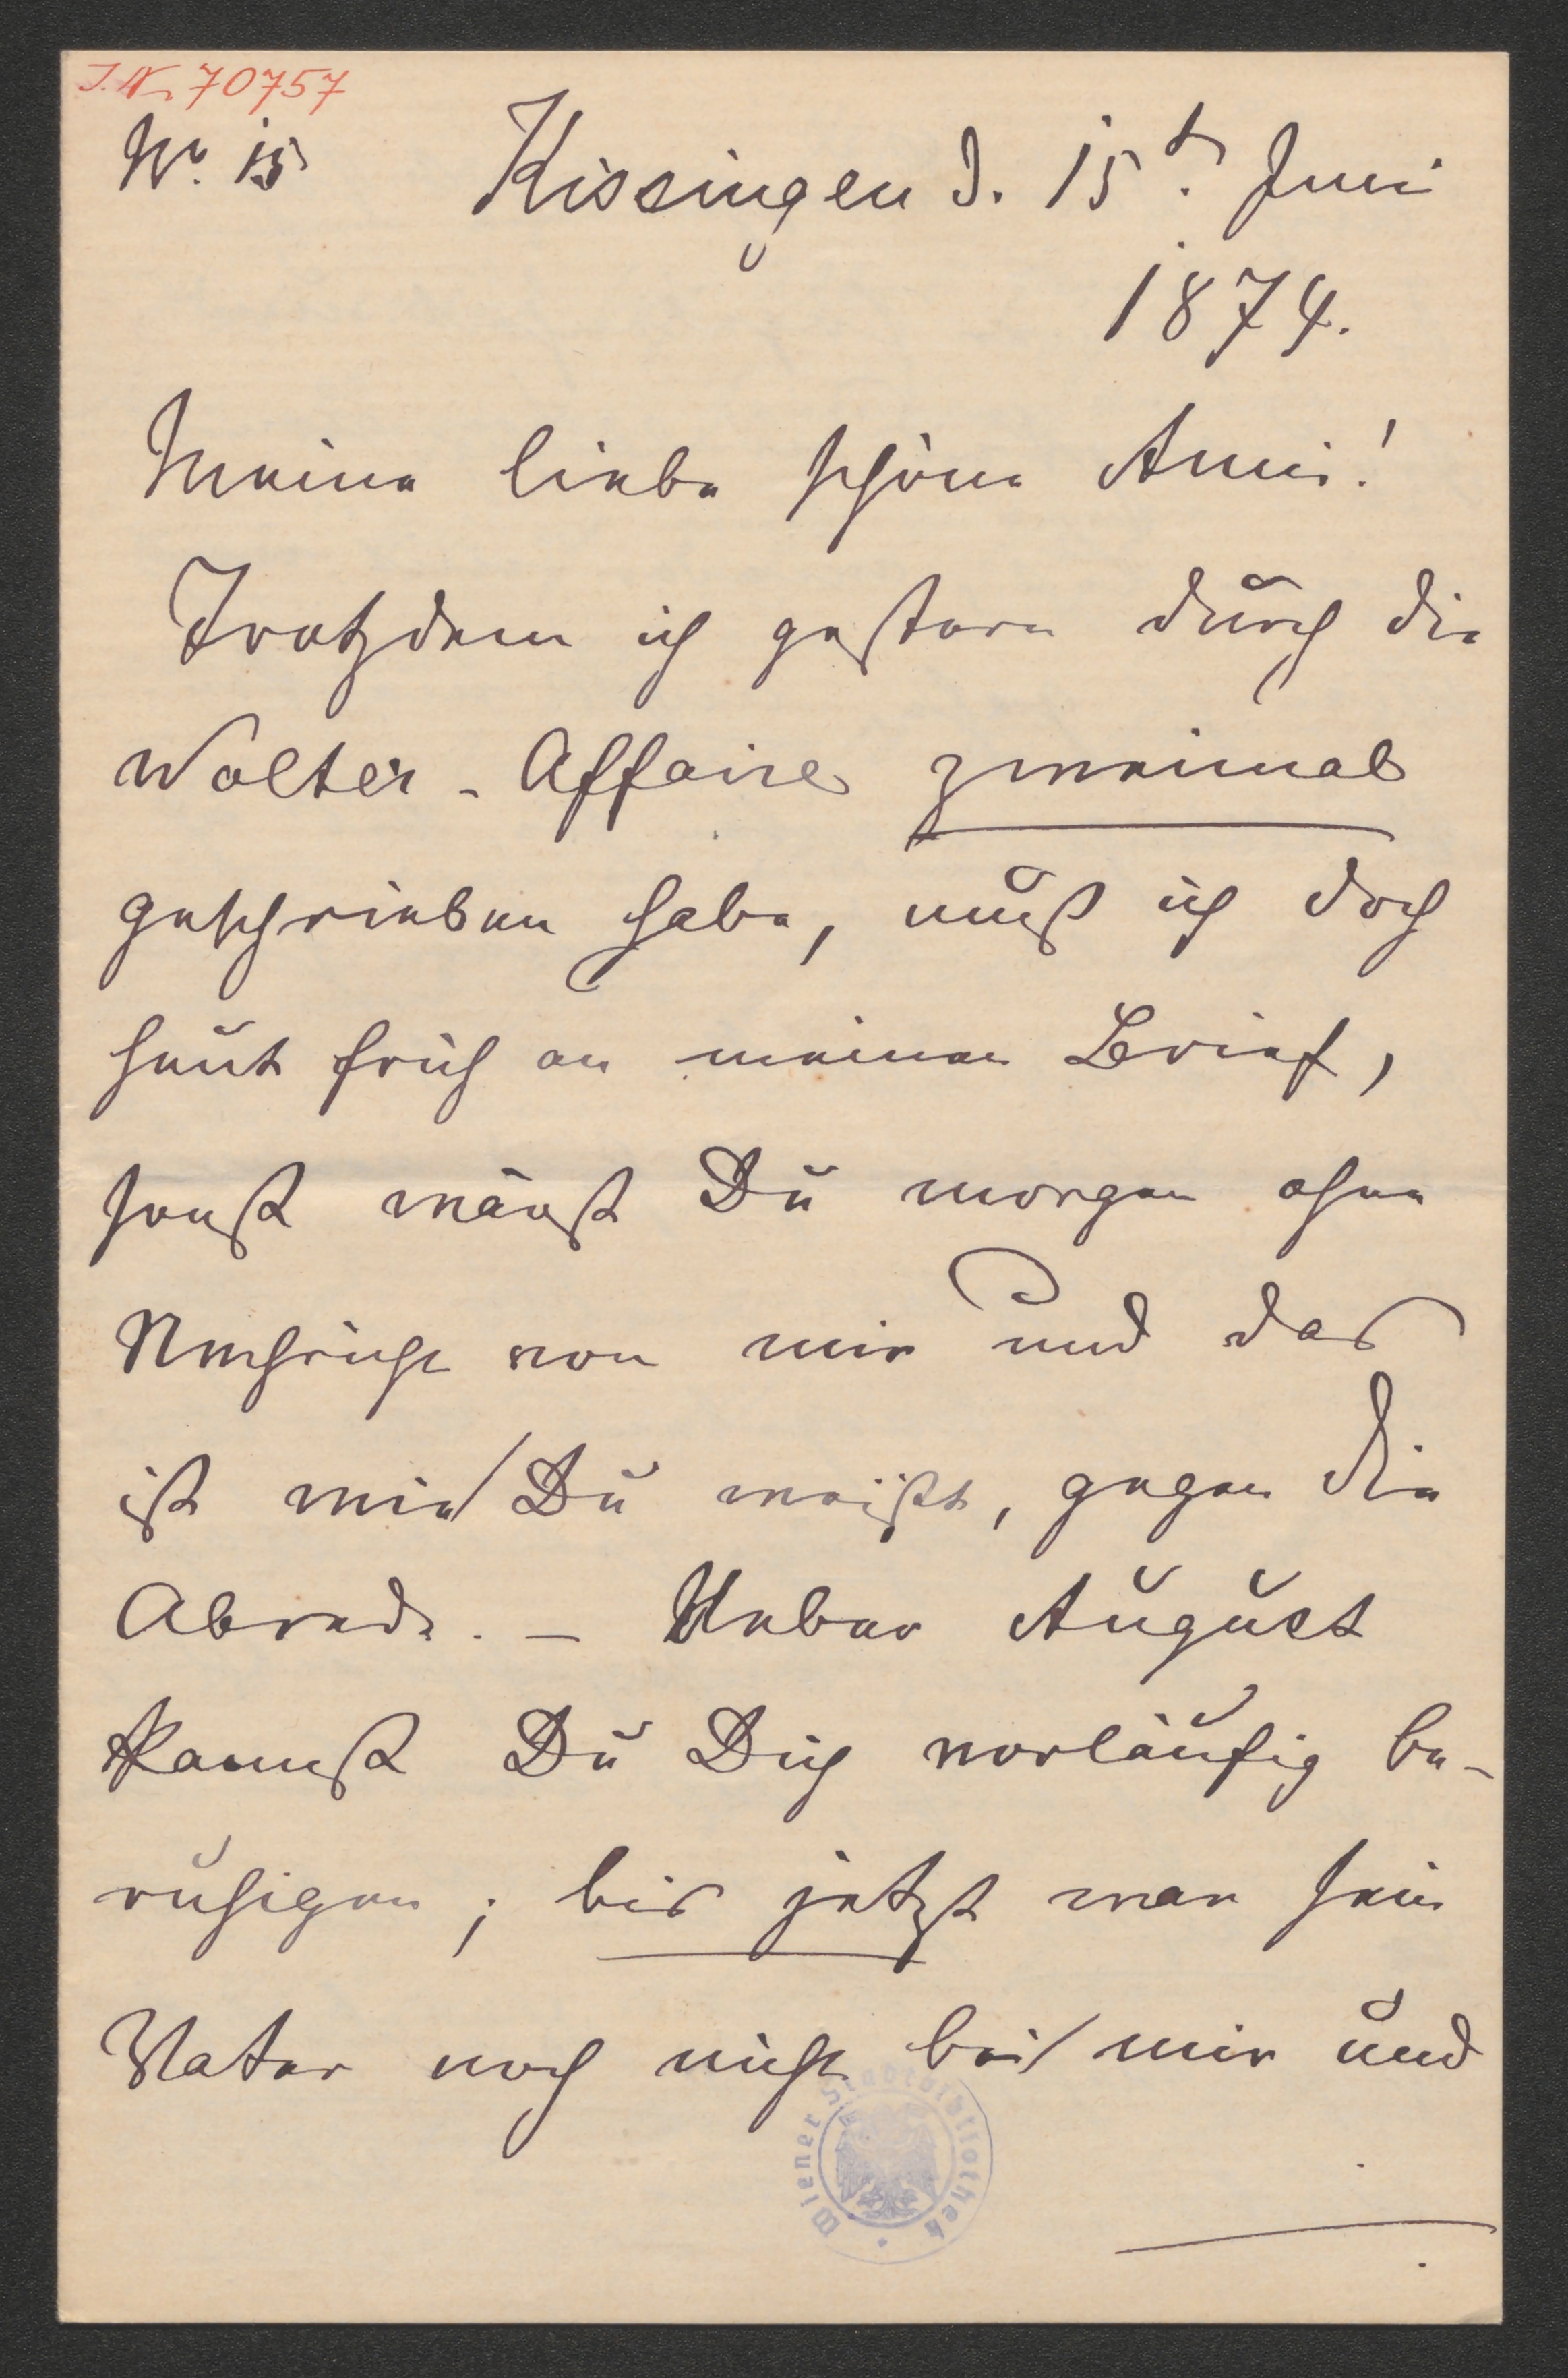 J. N. 70757
Nr. 15
Kissingen d. 15t. Juni
1874.
Meine liebe schöne Anni!
Trotzdem ich gestern durch die
Wolter-Affaire zweimal
geschrieben habe, muß ich doch
heut früh an meinen Brief,
sonst wärst Du morgen ohne
Nachricht von mir und das
ist wie Du weißt, gegen die
Abrede. – Ueber August
kannst Du Dich vorläufig be-
ruhigen; bis jetzt war sein
Vater noch nicht bei mir und
Wiener Stadtbibliothek